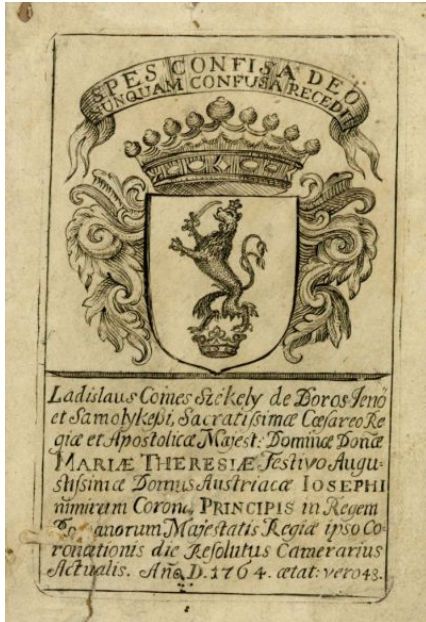 SPES CONFISA DEO
NUNQUAM CONFUSA RECEDIT
Ladislaus Comes Székely de Boros Jenő
et Samolykepi, Sacratissimæ CæsareoRe
giæ et Apostolicæ Majest: Dominæ Donæ
MARIÆ THERESIÆ Festivo Augu-
stissimæ Domus Austriacæ IOSEPHI
nimirum Coron. PRINCIPIS in Regem
anorum Majestatis Regiæ ipso Co-
ronationis die Resolutus Camerarius
Actualis. Año D. 1764. ætat: vero 48.